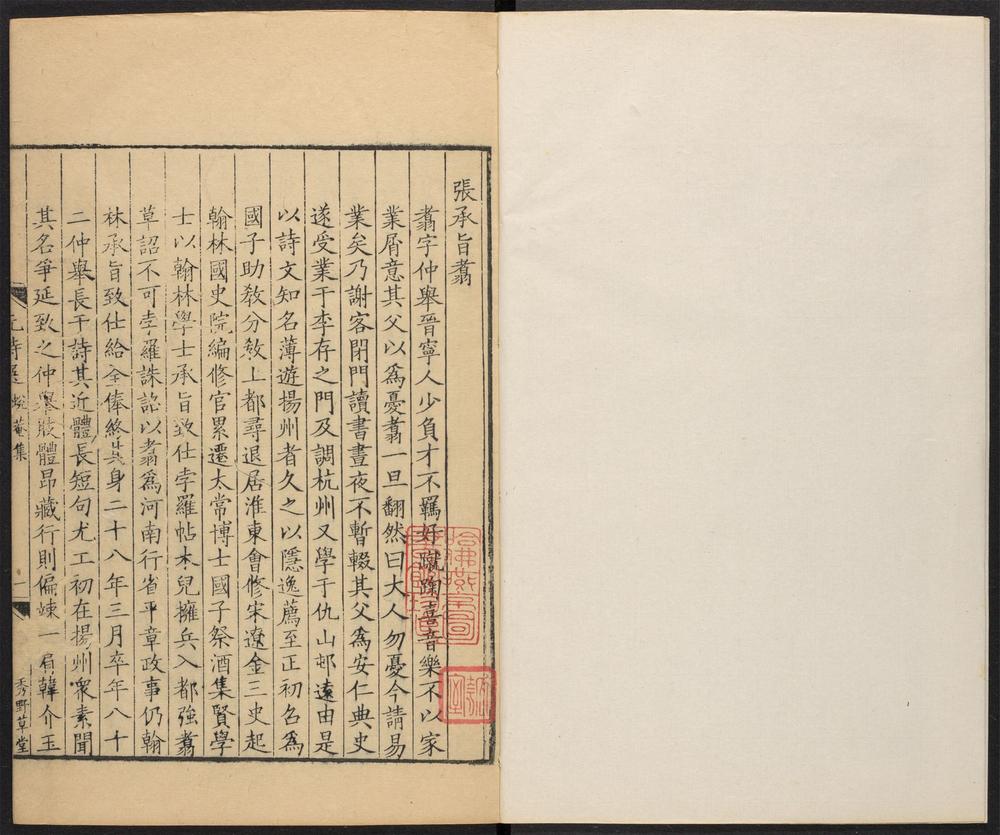 張承旨翥
翥字仲舉晉寧人少負才不羈好蹴踘喜音樂不以家
業屑意其父以爲憂翥一旦翻然曰大人勿憂今請易
業矣乃謝客閉門讀書晝夜不暫輟其父爲安仁典史
遂受業于李存之門及調杭州又學于仇山邨遠由是
以詩文知名薄遊揚州者久之以隱逸薦至正初召爲
國子助敎分敎上都尋退居淮東會修宋遼金三史起
翰林國史院編修官累遷太常博士國子祭酒集賢學
士以翰林學士承旨致仕孛羅帖木兒擁兵入都強翥
草詔不可孛羅誅詔以翥爲河南行省平章政事仍翰
林承旨致仕給全俸終其身二十八年三月卒年八十
二仲舉長于詩其近體長短句尤工初在揚州衆素聞
其名爭延致之仲舉肢體昂藏行則偏竦一肩韓介玉
元詩選 蛻菴集 一 秀野草堂